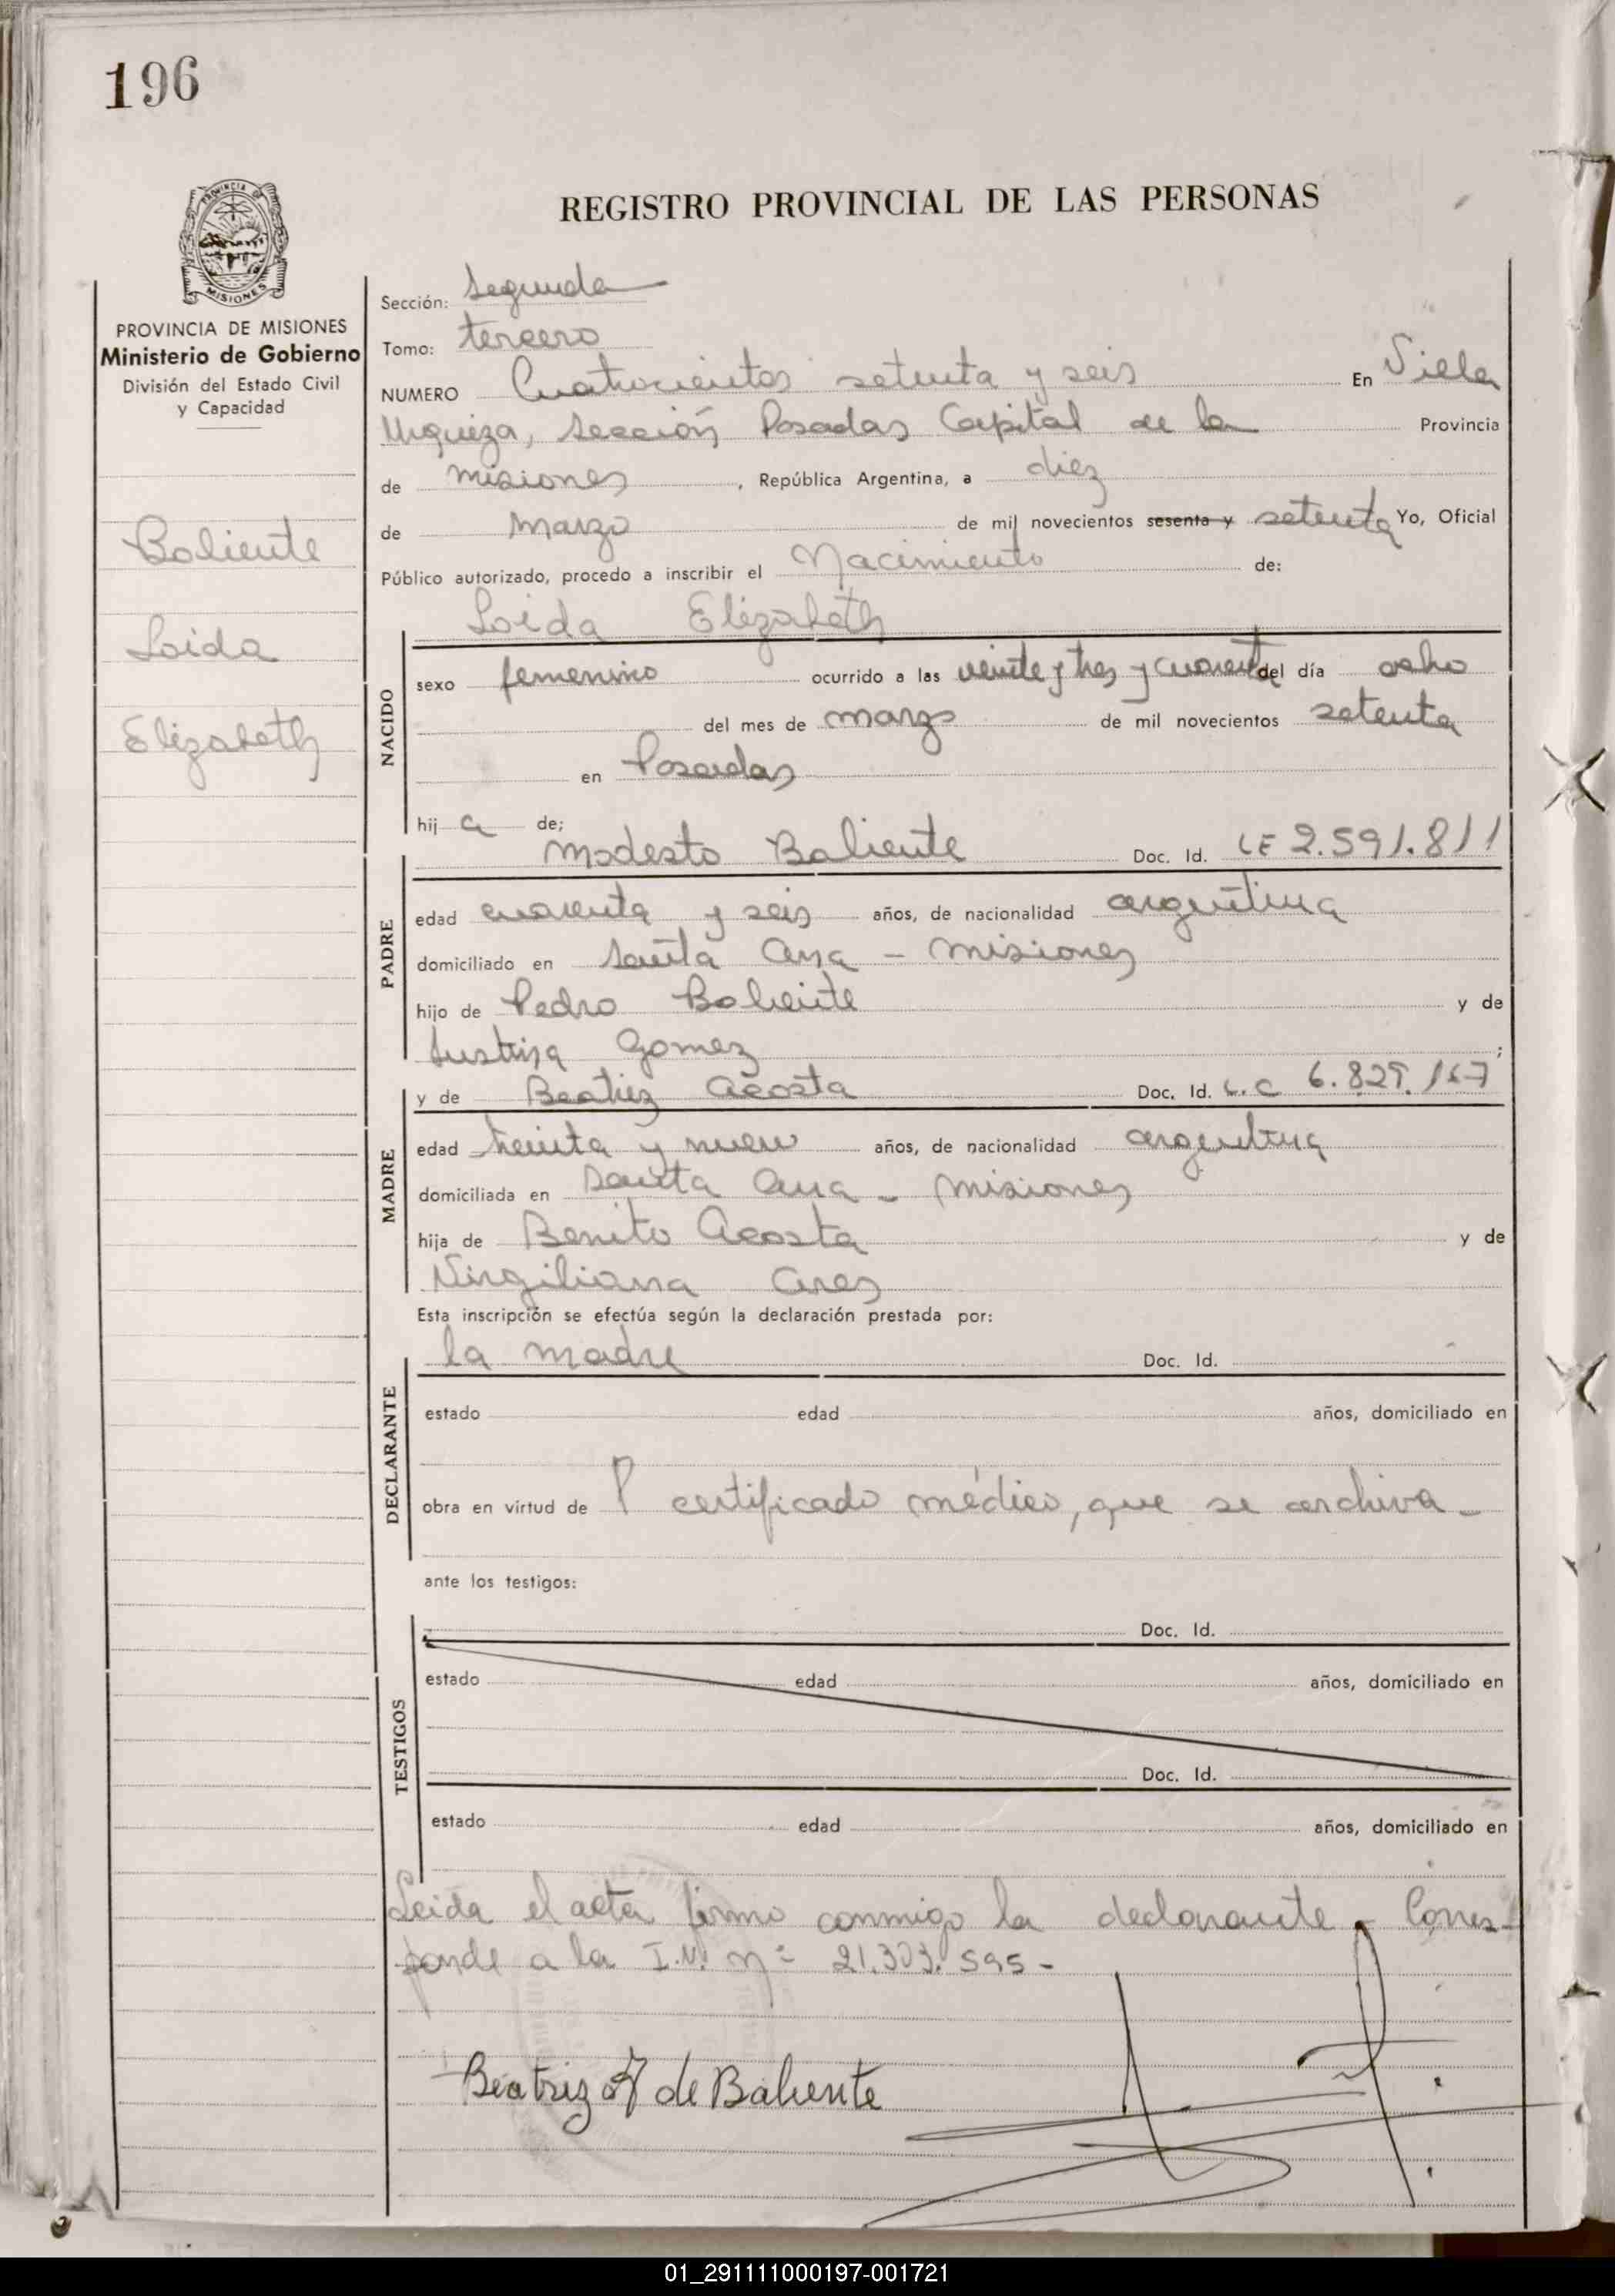 196
REGISTRO PROVINCIAL DE LAS PERSONAS
PROVINCIA DE MISIONES
Ministerio de Gobierno
División del Estado Civil
y Capacidad
Baliente
Loida
Elizabeth
Sección: Segunda
Tomo: tercero
NUMERO Cuatrocientos setenta y seis En Villa
Urquiza, Sección Posadas Capital de la Provincia
de Misiones, República Argentina, a diez
de Marzo de mil novecientos sesenta y setenta Yo, Oficial
Público autorizado, procedo a inscribir el Nacimiento de:
Loida Elizabeth
NACIDO
sexo femenino ocurrido a las veinte y tres y cuarenta del día ocho
del mes de marzo de mil novecientos setenta
en Posadas
hij a de;
Modesto Baliente Doc. Id. LE 2.591.811
PADRE
edad cuarenta y seis años, de nacionalidad argentina
domiciliado en Santa Ana - Misiones
hijo de Pedro Baliente y de
Gomez ;
y de Beatriz Acosta Doc. Id. L.C 6.825.167
MADRE
edad treinta y nueve años, de nacionalidad argentina
domiciliada en Santa Ana - Misiones
hija de Benito Acosta y de
Virgiliana Ares
Esta inscripción se efectúa según la declaración prestada por:
la madre Doc. Id.
DECLARANTE
estado edad años, domiciliado en
obra en virtud de certificado médico, que se archiva -
ante los testigos:
Doc. Id.
TESTIGOS
estado edad años, domiciliado en
Doc. Id.
estado edad años, domiciliado en
Leida el acta firmo conmigo la declarante - Corres-
ponde a la I.N. nº 21.303.595 -
Beatriz A de Baliente
01_291111000197-001721